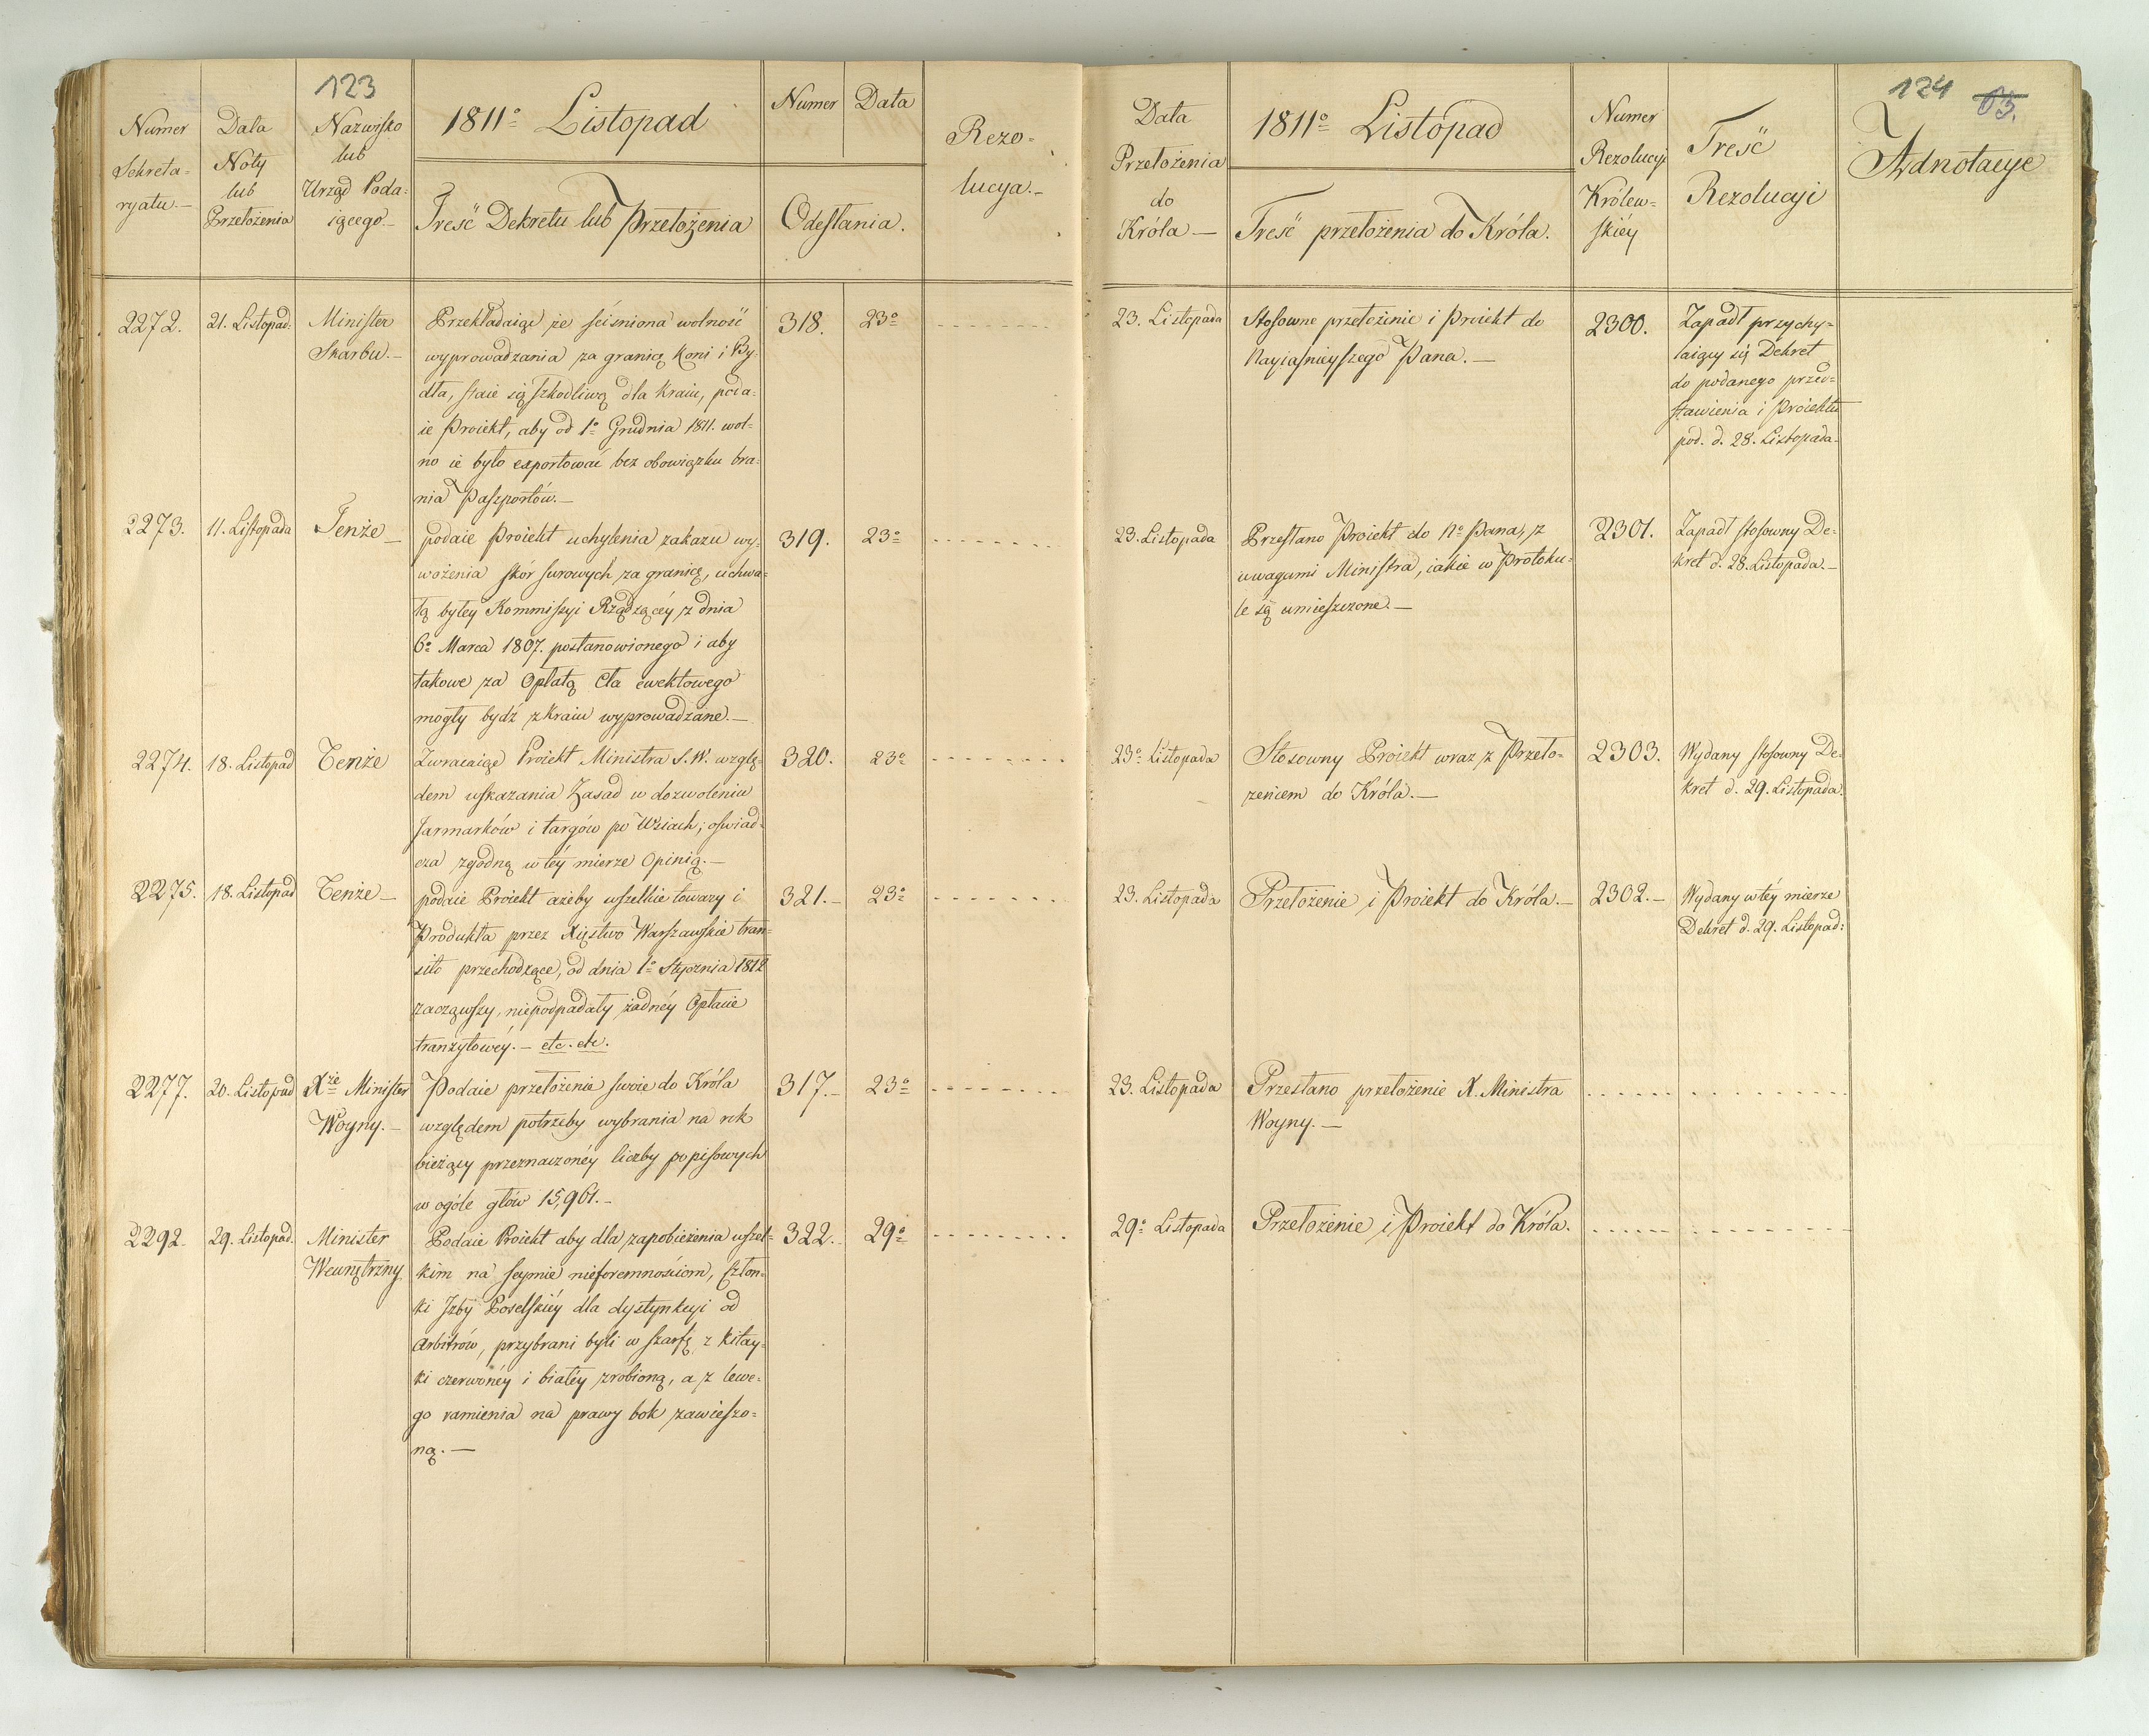 123
Numer
Sekreta=
ryatu.—
Data
Noty
lub
Przełożenia
Nazwisko
lub
Urząd Poda:
iącego.—
1811º Listopad
Treść Dekretu lub Przełożenia
Numer
Data
Odesłania.
Rezo=
lucya.—
2272.
21. Listopad:
Minister
Skarbu.—
Przekładaiąc że ściśniona wolność
wyprowadzania za granicę Koni i By:
dła, staie się szkodliwą dla Kraiu, poda:
ie Proiekt, aby od 1º Grudnia 1811. wol=
no ie było exportować bez obowiązku bra:
nia Paszportów.—
318.
23º
2273.
11. Listopada
Tenże—
podaie Proiekt uchylenia zakazu wy=
wożenia skór surowych za granicę, uchwa=
łą byłey Kommissyi Rządzącéy z dnia
6º Marca 1807. postanowionego i aby
takowe za Opłatą Cła ewektowego
mogły bydź z Kraiu wyprowadzane.—
319.
23º
2274.
18. Listopad
Tenże
Zwracaiąc Proiekt Ministra S. W. wzglę=
dem wskazania Zasad w dozwoleniu
Jarmarków i targów po Wsiach; oświad=
cza zgodną w téy mierze Opinią.—
320.
23º
2275.
18. Listopad
Tenże—
podaie Proiekt ażeby wszelkie towary i
Produkta przez Xięstwo Warszawskie tran=
sito przechodzące, od dnia 1º Stycznia 1812
zacząwszy, niepodpadały żadnéy Opłacie
tranzytowéy.— etc. etc.
321.—
23º
2277.
20. Listopad
Xże Minister
Woyny.—
Podaie przełożenie swoie do Króla
względem potrzeby wybrania na rok
bieżący przeznaczonéy liczby popisowych
w ogóle głów 15,961.—
317.—
23º
2292.
29. Listopad.
Minister
Wewnętrzny
Podaie Proiekt aby dla zapobieżenia wszel=
kim na seymie nieforemnościom, Człon=
ki Izby Poselskiéy dla dystynkcyi od
Arbitrów, przybrani byli w szarfę z kitay=
ki czerwonéy i białéy zrobioną, a z lewe=
go ramienia na prawy bok zawieszo=
ną.—
322.
29º
124
63.
Data
Przełożenia
do
Króla—
1811º Listopad
Treść przełożenia do Króla.
Numer
Rezolucyi
Królew=
skiéy
Treść
Rezolucyi
Adnotacye
23. Listopada
Stosowne przełożenie i Proiekt do
Nayiaśnieyszego Pana.—
2300.
Zapadł przychy=
laiący się Dekret
do podanego przed=
stawienia i Proiektu
pod. d. 28. Listopada.
23. Listopada
Przesłano Proiekt do Nº Pana, z
uwagami Ministra, iakie w Protoku=
le są umieszczone.—
2301.
Zapadł stosowny De=
kret d. 28. Listopada.—
23º Listopada
Stosowny Proiekt wraz z Przeło=
żeniem do Króla.—
2303.
Wydany stosowny De=
kret d. 29. Listopada.
23. Listopada
Przełożenie i Proiekt do Króla.—
2302.—
Wydany w téy mierze
Dekret d. 29. Listopad:
23. Listopada
Przesłano przełożenie X. Ministra
Woyny.—
29º Listopada
Przełożenie i Proiekt do Króla.